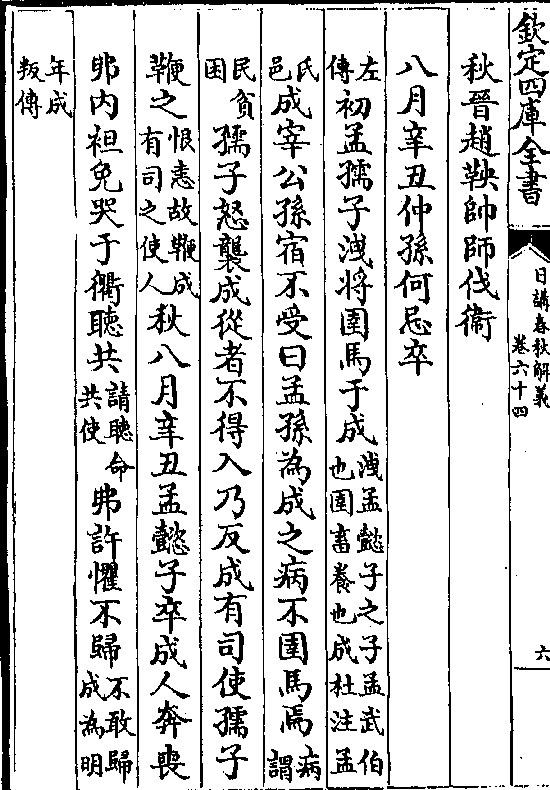 欽定四庫全書
日講春秋解義
卷六十四
六
秋晉趙鞅帥師伐衛
八月辛丑仲孫何忌卒
左傳初孟孺子洩將圉馬于成洩孟懿子之子孟武伯也圉畜養也成杜注孟
氏邑成宰公孫宿不受曰孟孫為成之病不圉馬焉病謂
民貧困孺子怒襲成從者不得入乃反成有司使孺子
鞭之恨恚故鞭成有司之使人秋八月辛丑孟懿子卒成人奔喪
弗內袒免哭于衢聽共請聽命共使弗許懼不歸不敢歸成為明
年成叛傳